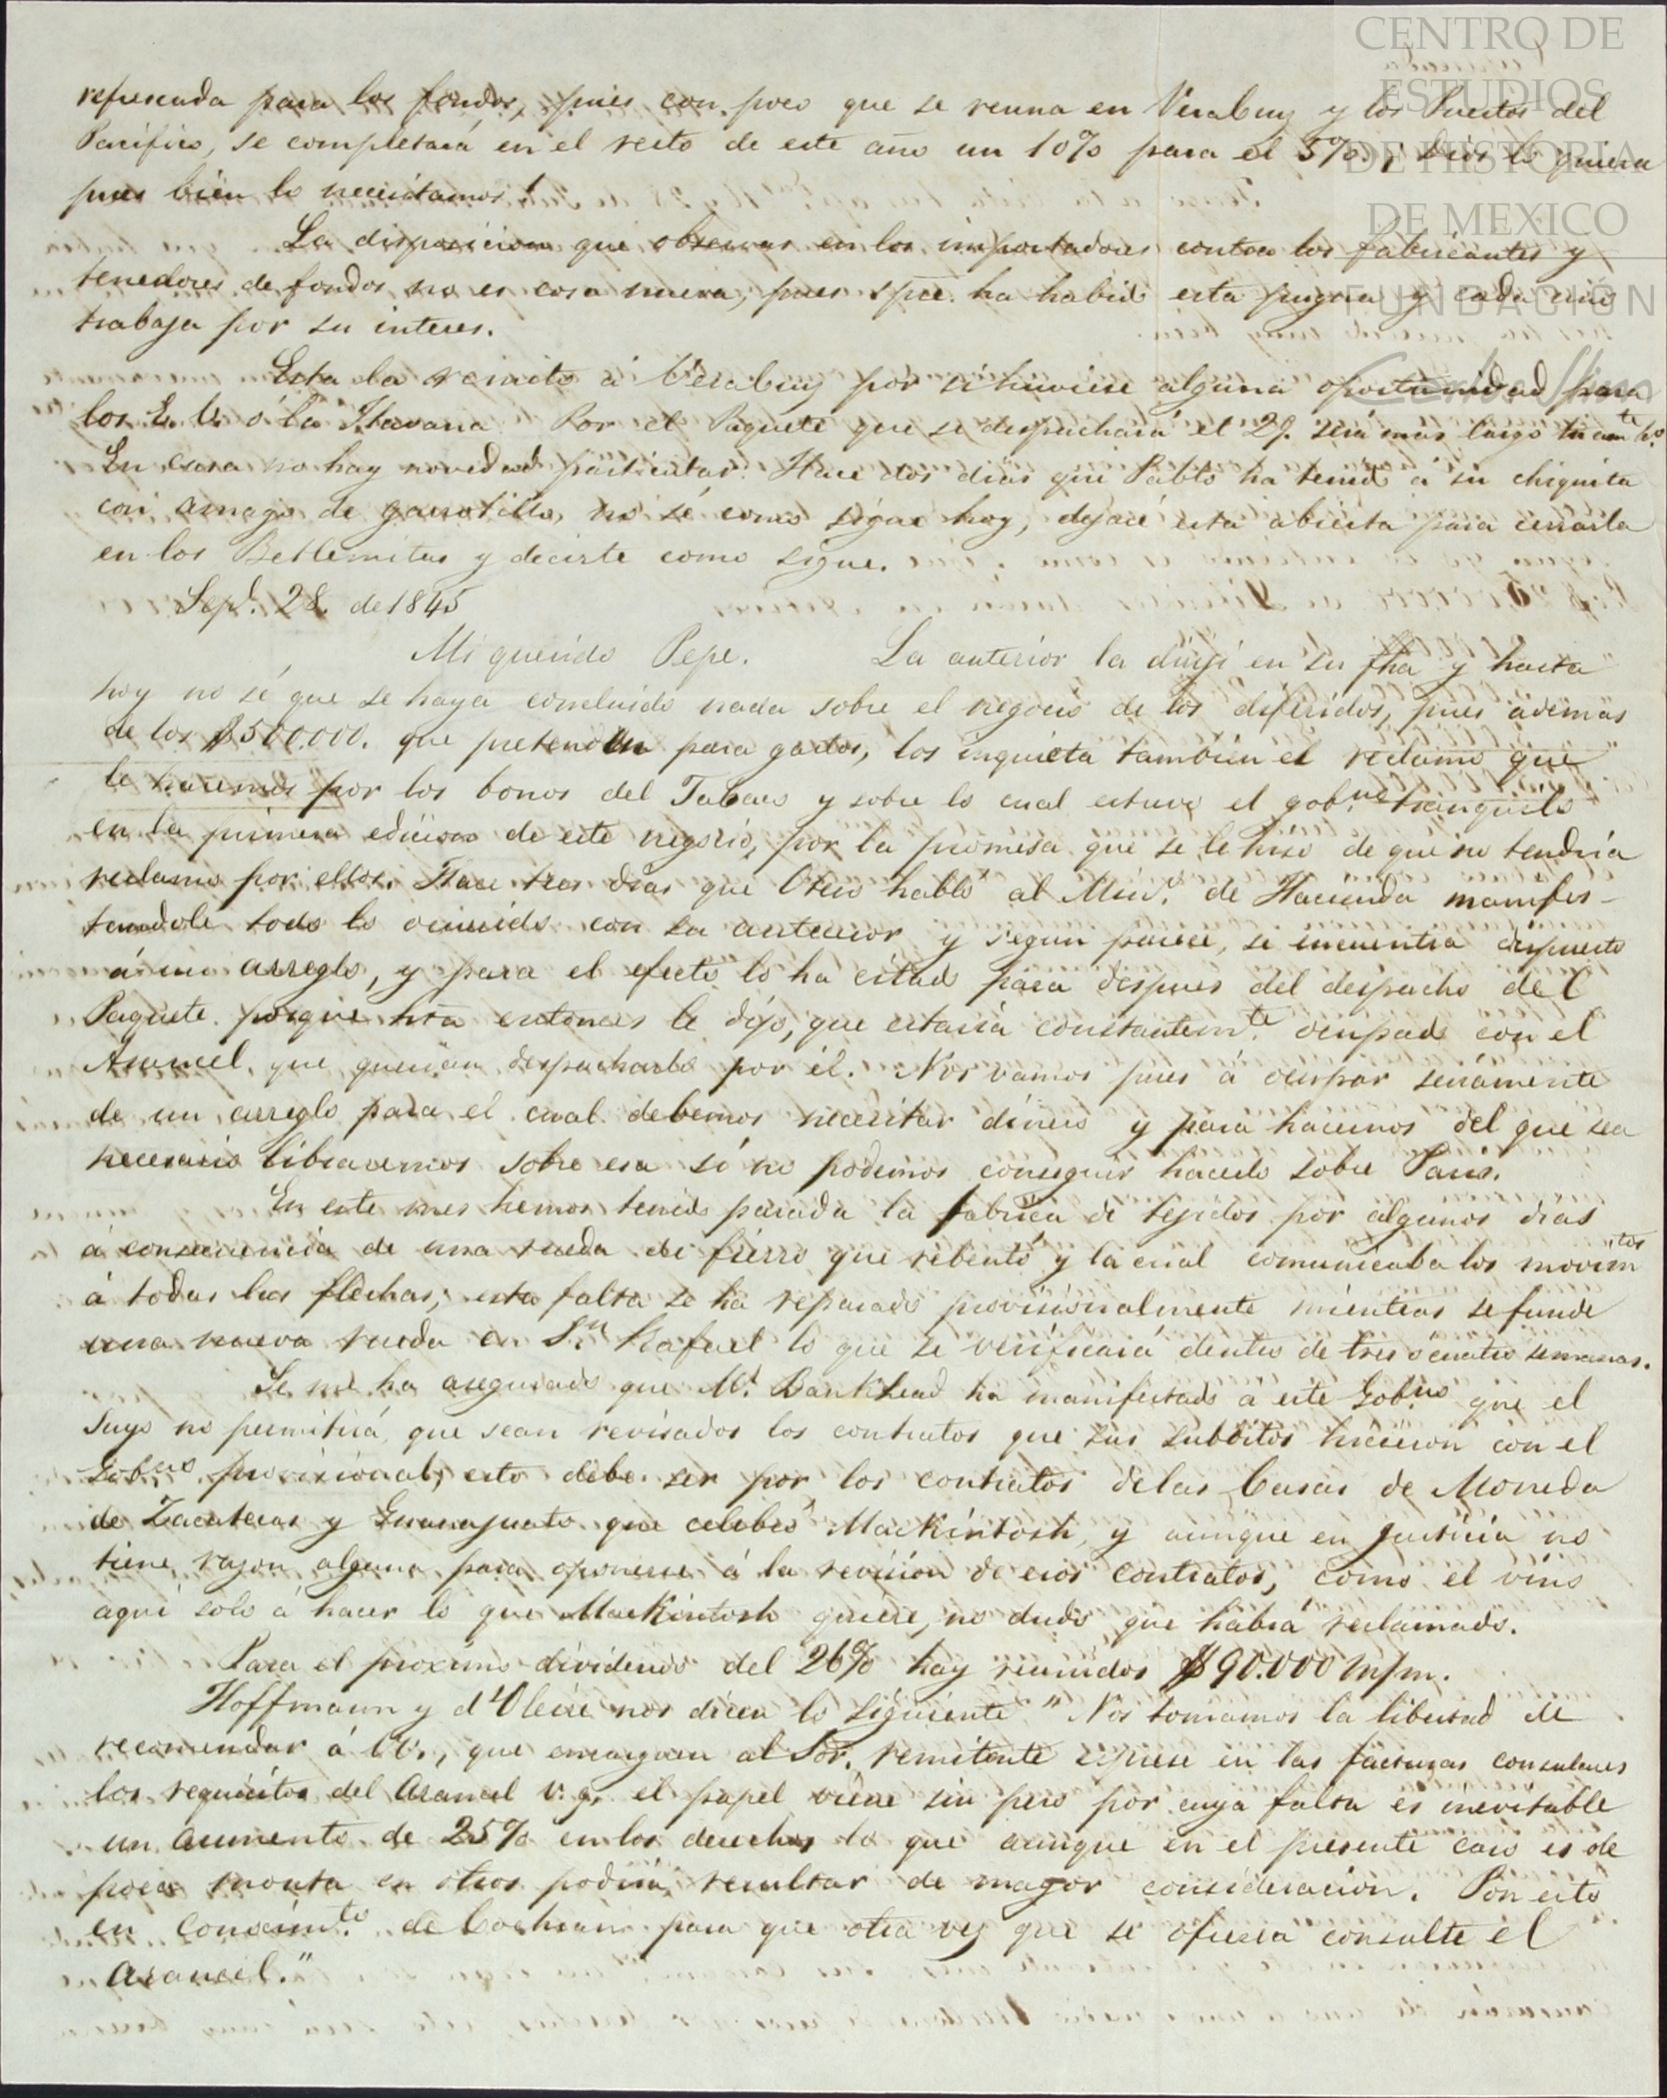 CENTRO DE
ESTUDIOS
DE HISTORIA
DE MEXICO
FUNDACIÓN
Carlos Slim
refuscada para los fondos, pues con poco que se reuna en Veracruz y los Puertos del
Pacifico, se completará en el resto de este año un 10% para el 5%. ¡Dios lo quiera
pues bien lo necesitamos!
La disposicion que observas en los importadores contra los fabricantes y
tenedores de fondos no es cosa nueva, pues spre. ha habido esta pugna y cada uno
trabaja por su interes.
Esta la remito á Veracruz por si huviese alguna oportunidad para
los E. U. ó la Havana. Por el Paquete que se despachará el 29. será mas largo tu amte. ho.
En casa no hay novedad particular. Hace dos dias que Pablo ha tenido á su chiquita
con amago de garrotillo, no sé como sigue hoy, dejaré esta abierta para cerrarla
en los Betlemitas y decirte como sigue.
Sepe. 28. de 1845
Mi querido Pepe. La anterior la dirijí en su fha y hasta
hoy no sé que se haya concluido nada sobre el negocio de los diferidos, pues ademas
de los $500.000. que pretenden para gastos, los inquieta tambien el reclamo que
le haremos por los bonos del Tabaco y sobre lo cual estuvo el gobno. tranquilo
en la primera edicion de este negocio, por la promesa que se le hiso de que no tendria
reclamo por ellos. Hace tres dias que Otero habló al Mino. de Hacienda manifes-
tandole todo lo ocurrido con su antecesor y segun parece, se encuentra dispuesto
á un arreglo, y para el efecto lo ha citado para despues del despacho del
Paquete porque hta entonces le dijo, que estaria constantemte. ocupado con el
Arancel, que querian despacharlo por él. Nos vamos pues á ocupar sériamente
de un arreglo para el cual debemos necesitar dinero y para hacernos del que sea
necesario libraremos sobre esa si no podemos conseguir hacerlo sobre Paris.
En este mes hemos tenido parada la fabrica de tejidos por algunos dias
á consecuencia de una rueda de fierro que rebentó y la cual comunicaba los movimtos
á todas las flechas; esta falta se ha reparado provisionalmente mientras se funde
una nueva rueda en Sn. Rafael lo que se verificará dentro de tres ó cuatro semanas.
Se me ha asegurado que Mr. Bankhead ha manifestado á este Gobno. que el
suyo no permitirá que sean revisados los contratos que sus subditos hicieron con el
Gobno. provisional; esto debe ser por los contratos de las Casas de Moneda
de Zacatecas y Guanajuato que celebró Mackintosh, y aunque en justicia no
tiene razon alguna para oponerse á la revision de esos contratos, como él vino
aqui solo á hacer lo que Mackintosh quiere, no dudo que habrá reclamado.
Para el proximo dividendo del 26% hay reunidos $90.000 m/m.
Hoffmann y d'Oleire nos dicen lo siguiente "Nos tomamos la libertad de
recomendar á VV., que encarguen al Sor. remitente esprese en las facturas consulares
los requisitos del Arancel v. g. el papel viene sin peso por cuya falta es inevitable
un aumento de 25% en los derechos lo que aunque en el presente caso es de
poca monta en otros podria resultar de mayor consideracion. Pon esto
en conocimto. de Cochran para que otra vez que se ofresca consulte el
arancel."